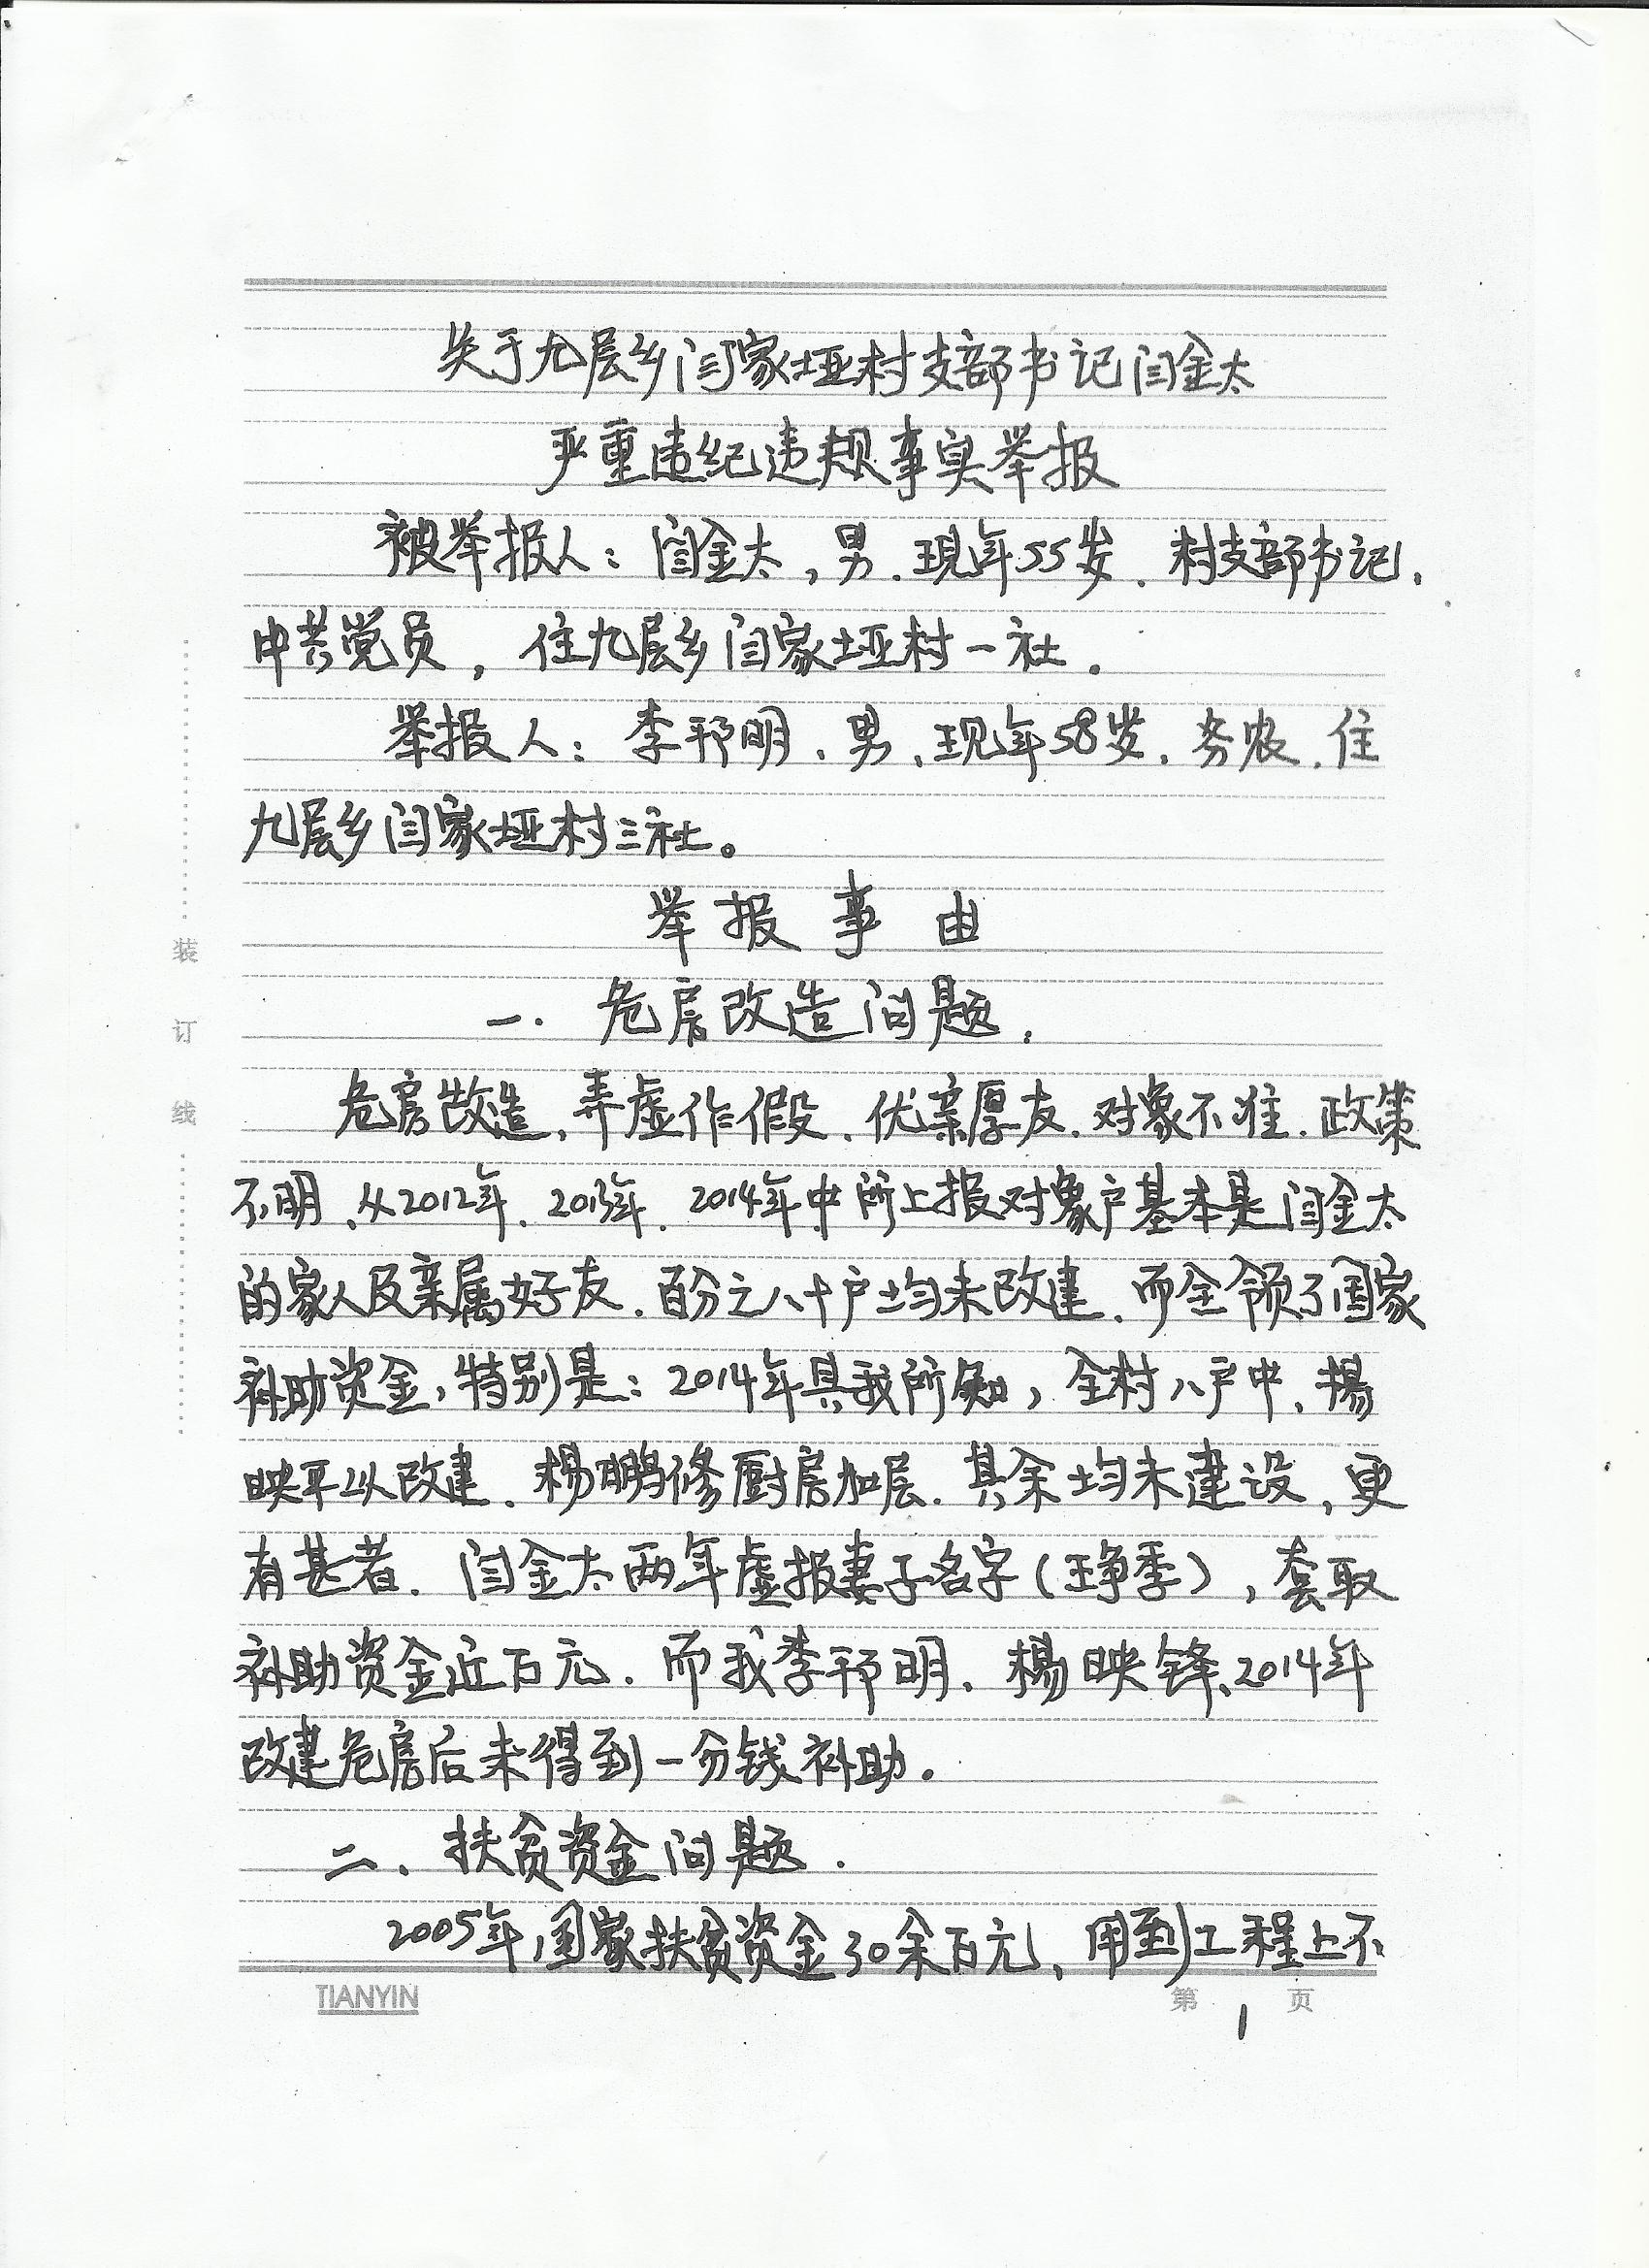 关于九层乡闫家垭村支部书记闫金太
严重违纪违规事实举报
被举报人：闫金太，男、现年55岁、村支部书记、
中共党员，住九层乡闫家垭村一社。
举报人：李邦明、男、现年58岁、务农、住
九层乡闫家垭村三社。
举报事由
一、危房改造问题：
危房改造、弄虚作假、优亲厚友、对象不准、政策
不明、从2012年、2013年、2014年中所上报对象户基本是闫金太
的家人及亲属好友、百分之八十户均未改建、而全领了国家
补助资金，特别是：2014年具我所知，全村八户中、楊
映平以改建、楊鹏修厨房加层、其余均未建设，更
有甚者、闫金太两年虚报妻子名字（王净季），套取
补助资金近百元、而我李邦明、楊映锋、2014年
改建危房后未得到一分钱补助。
二、扶贫资金问题．
2005年国家扶贫资金30余百元、用到工程上不
装
订
线
TIANYIN
第 1 页